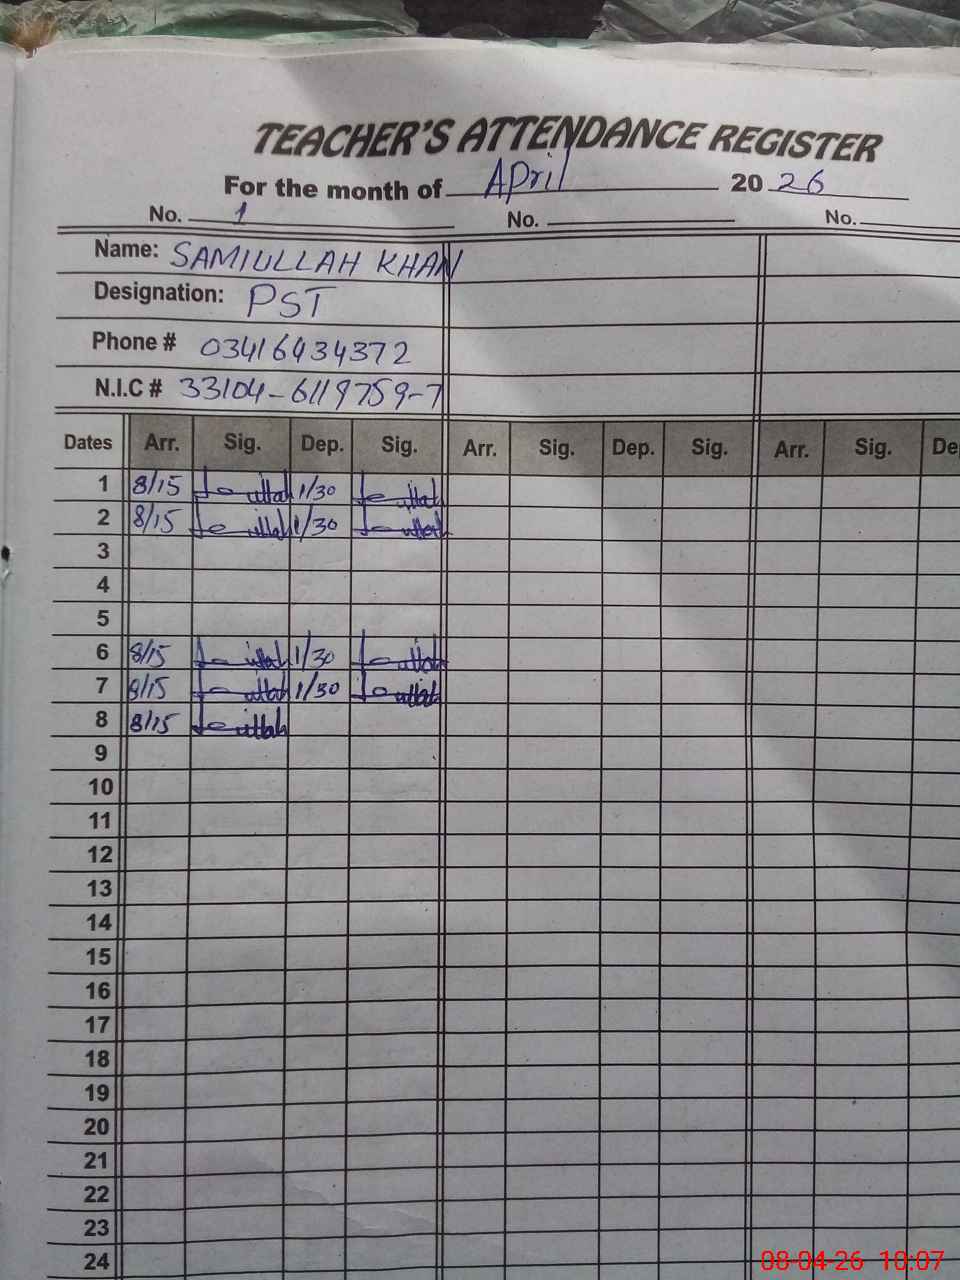 TEACHER'S ATTENDANCE REGISTER
For the month of April 2026
No. 1 No. No.
Name: SAMIULLAH KHAN
Designation: PST
Phone # 03416434372
N.I.C # 33104-6119759-7
Dates Arr. Sig. Dep. Sig. Arr. Sig. Dep. Sig. Arr. Sig. De
1 8/15 1/30
2 8/15 1/30
3
4
5
6 8/15 1/30
7 8/15 1/30
8 8/15
9
10
11
12
13
14
15
16
17
18
19
20
21
22
23
24
08-04-26 10:07